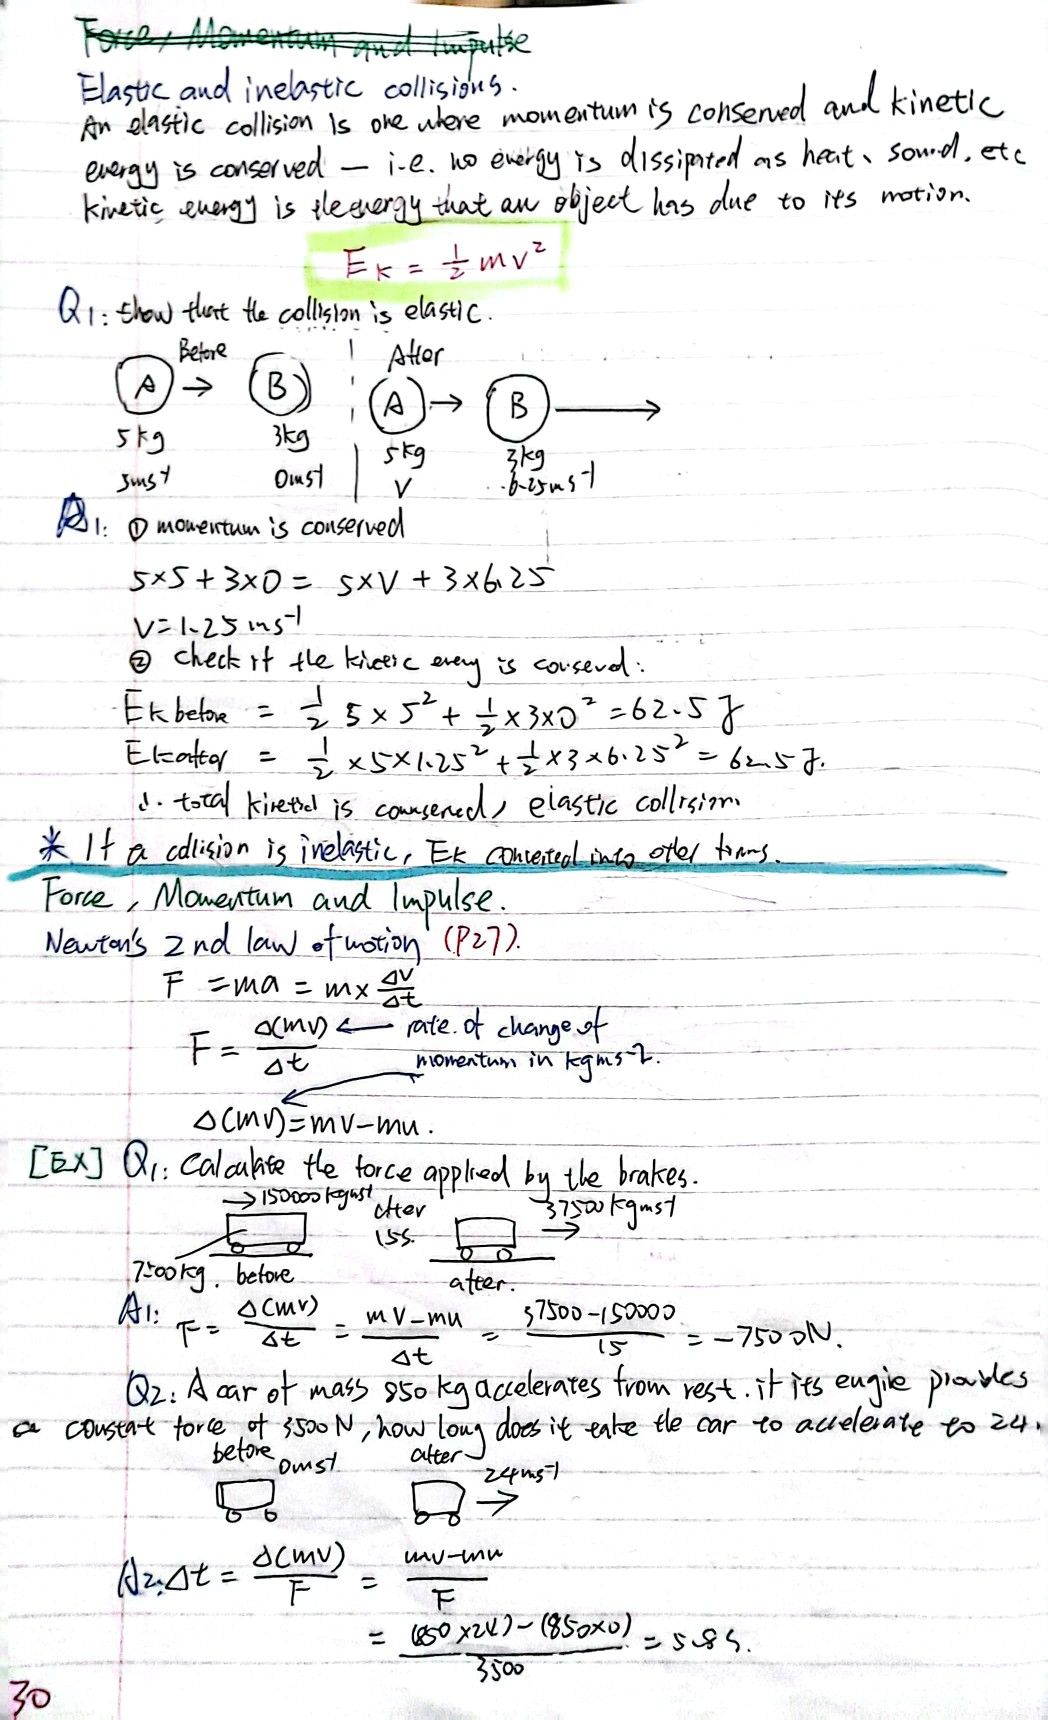 Force, Momentum and Impulse
Elastic and inelastic collisions.
An elastic collision is one where momentum is conserved and kinetic
energy is conserved — i.e. no energy is dissipated as heat、sound, etc
kinetic energy is the energy that an object has due to its motion.
Eₖ = ½ mv²
Q1: show that the collision is elastic.
Before After
A → B A → B →
5kg 3kg 5kg 3kg
5ms⁻¹ 0ms⁻¹ V 6.25ms⁻¹
A1: ① momentum is conserved
5×5 + 3×0 = 5×V + 3×6.25
V = 1.25 ms⁻¹
② check if the kinetic energy is conserved:
Ek before = ½ 5 × 5² + ½ × 3×0² = 62.5 J
Ek after = ½ ×5×1.25² + ½ ×3×6.25² = 62.5 J.
∴ total is elastic collision.
* If a collision is inelastic, Ek converted into other forms.
Force, Momentum and Impulse.
Newton's 2nd law of motion (P27).
F = ma = m× Δv/Δt
F = Δ(mv)/Δt ← rate of change of
momentum in kgms⁻².
Δ(mv) = mv-mu.
[EX] Q1: Calculate the force applied by the brakes.
→ 150000 kgms⁻¹ after 37500 kgms⁻¹
15s. →
7500kg. before after.
A1: F = Δ(mv)/Δt = mv-mu/Δt = 37500-150000/15 = -7500N.
Q2: A car of mass 850 kg accelerates from rest. if its engine provides
a constant force of 3500 N, how long does it take the car to accelerate to 24.
before 0ms⁻¹ after 24ms⁻¹
→
A2: Δt = Δ(mv)/F = mv-mu/F
= (850×24)-(850×0)/3500 = 5.8 s.
30